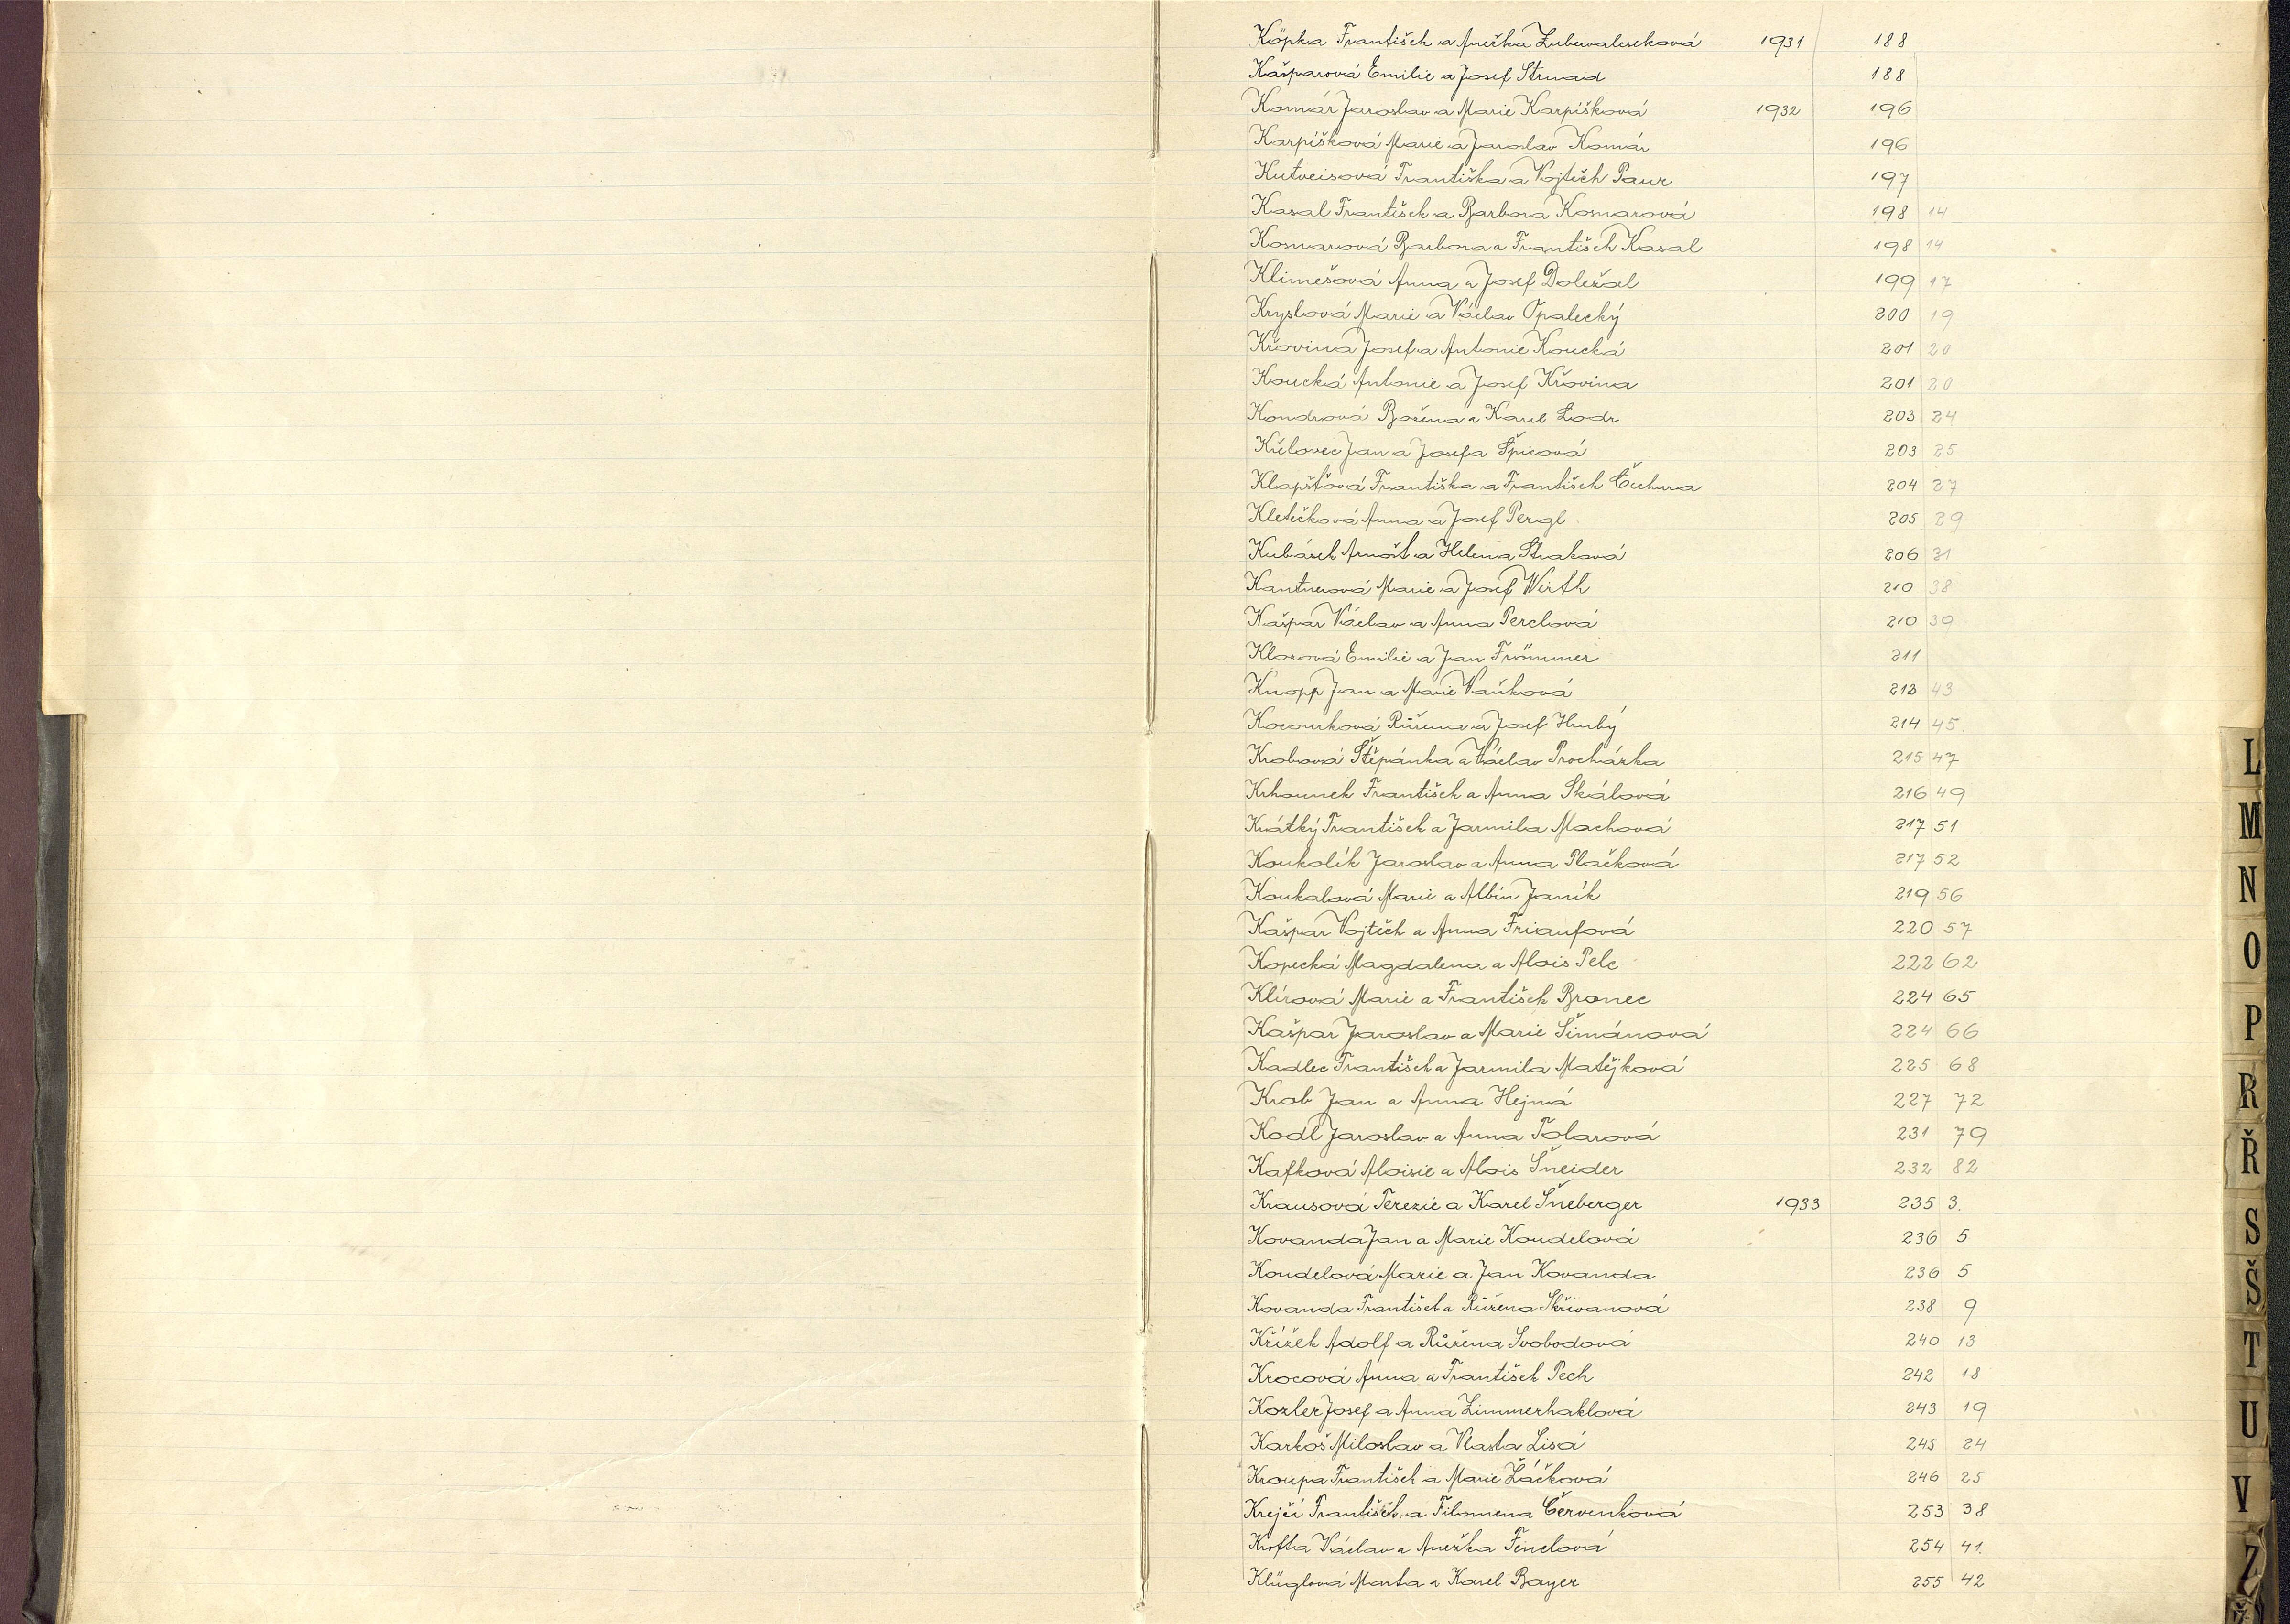 Köpka František a Anežka 1931 188
Kašparová Emilie a Josef Strnad 188
Komár Jaroslav a Marie Karpíšková 1932 196
Karpíšková Marie a Jaroslav Komár 196
Kutveisová Františka a Vojtěch Paur 197
Kasal František a Barbora Kosnarová 198 14
Kosnarová Barbora a František Kasal 198 14
Klimešová Anna a Josef Doležal 199 17
Kryslová Marie a Václav Opalecký 200 19
Křovina Josef a Antonie Koucká 201 20
Koucká Antonie a Josef Křovina 201 20
Kondrová Božena a Karel Lodr 203 24
Křelovec Jan a Josefa Špicová 203 25
Klapšťová Františka a František Čechura 204 27
Kletečková Anna a Josef Pergl 205 29
Kubásek Arnošt a Helena Straková 206 31
Kantnerová Marie a Josef Wirth 210 38
Kašpar Václav a Anna Perclová 210 39
Klozová Emilie a Jan Frömmer 211
Knopp Jan a Marie Vaňková 213 43
Kocourková Růžena a Josef Hrubý 214 45.
Krobová Štěpánka a Václav Procházka 215 47
Krhounek František a Anna Skálová 216 49
Krátký František a Jarmila Machová 217 51
Koukolík Jaroslav a Anna Plačková 217 52
Koukalová Marie a Albín Janík 219 56
Kašpar Vojtěch a Anna Friaufová 220 57
Kopecká Magdalena a Alois Pelc 222 62
Klírová Marie a František Bronec 224 65
Kašpar Jaroslav a Marie Šimánová 224 66
Kadlec František a Jarmila Matějková 225 68
Krob Jan a Anna Hejná 227 72
Kodl Jaroslav a Anna Tolarová 231 79
Kafková Aloisie a Alois Šneider 232 82
Krausová Terezie a Karel Šneberger 1933 235 3.
Kovanda Jan a Marie Koudelová 236 5
Koudelová Marie a Jan Kovanda 236 5
Kovanda František a Růžena Skřivanová 238 9
Křížek Adolf a Růžena Svobodová 240 13
Krocová Anna a František Pech 242 18
Kozler Josef a Anna Zimmerhaklová 243 19
Karkoš Miloslav a Vlasta Lisá 245 24
Kroupa František a Marie Žáčková 246 25
Krejčí František a Filomena Červenková 253 38
Krofta Václav a Anežka Fenclová 254 41.
Klüglová Marta a Karel Bayer 255 42
L
M
N
O
P
R
Ř
S
Š
T
U
V
Z